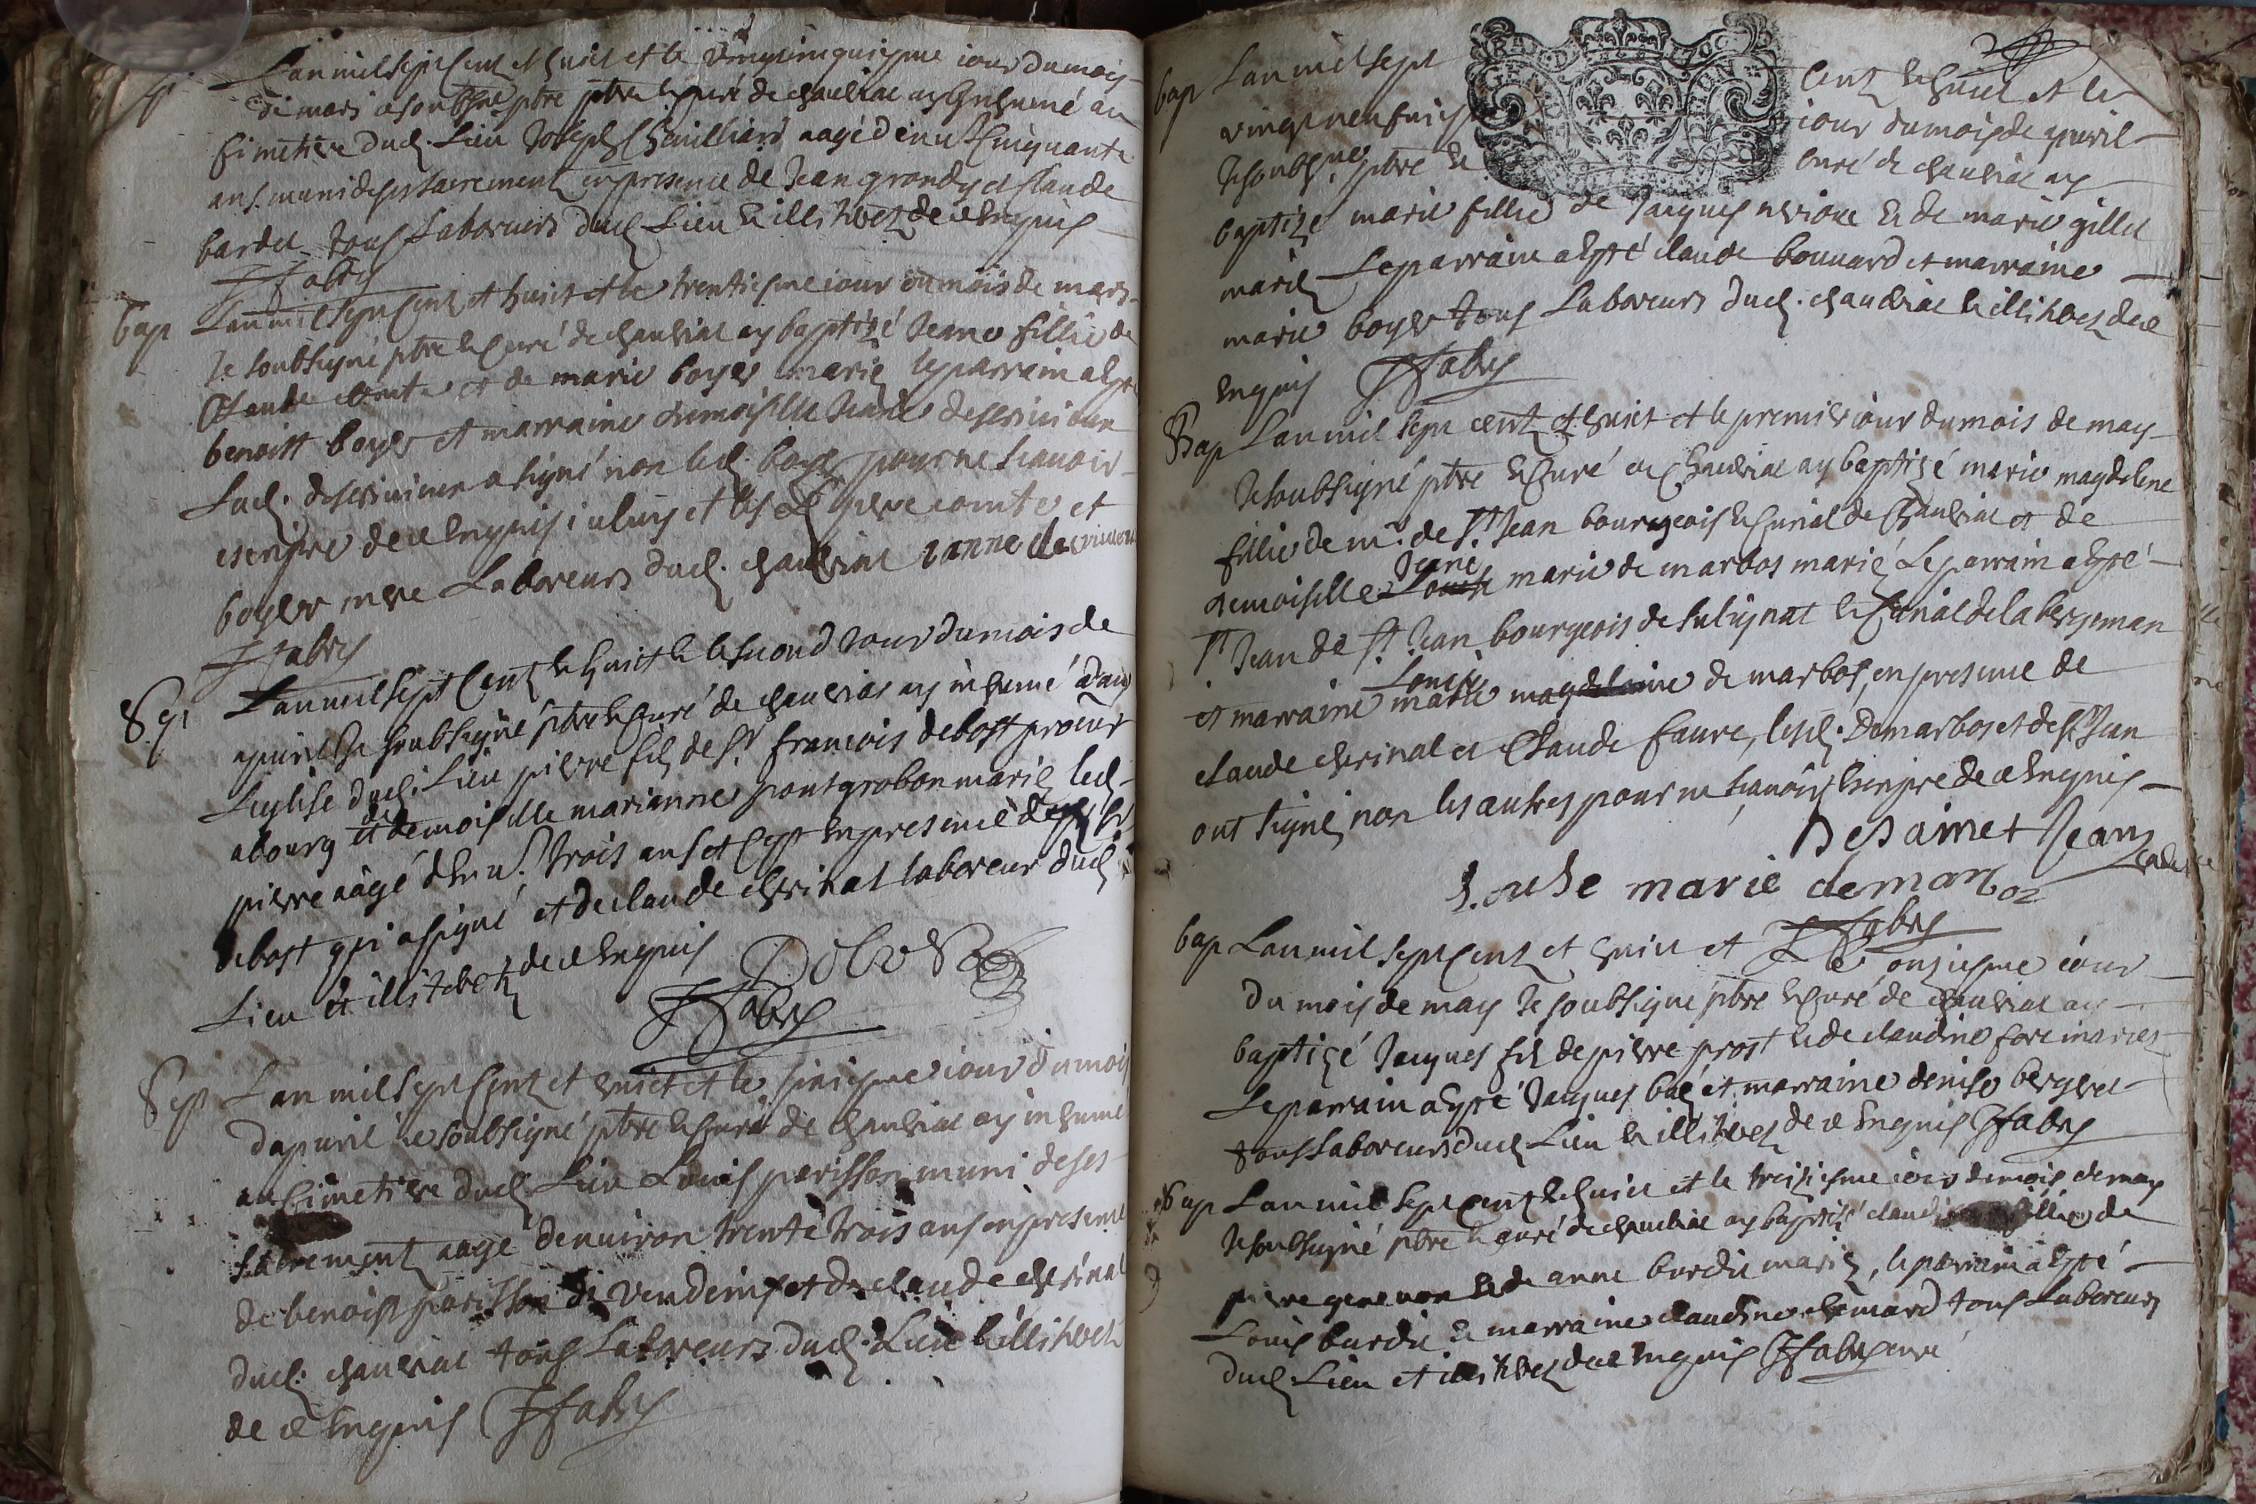 Lan mil sept cent et huict et le vingtcinquiyme iour du mois
de mars ie soubsigne ptre et curé de chauriat ay inhumé au
cimetiere dud. Lieu Joseph aagé denu. cinquante
ans muni des sacrement en presence de Jean grandy et claude
bardel tous Laboreurs dud Lieu et illitterez de ce enquis
JFabry
bap Lan mil sept cent et huict et le trentiesme iour du mois de mars
Je soubsigné ptre et curé de chauriat ay baptizé Jeane fillie de
Claude comte et de marie boyer mariez le parrain a esté
benoist boyer et marraine damoiselle Jeane
Lad. a signé non led. boyer pour ne scauoir
escripre de ce enquis iceluy et les pere comte et
boyer mere Laboreurs dud. chauriat
JFabry
Sep Lan mil sept cent et huict et le second iour du mois de
apuril Je soubsigné ptre et curé de chauriat ay inhumé dans
Leglise dud. Lieu pierre filz de Sr francois debost procur
abourg et de demoiselle marianne pontgrobon mariez led
pierre aagé denu. trois ans et ce en presence de
debost qui a signé et de claude cherinal laboreur dud
Lieu et illiterez de ce enquis Debost
JFabry
Sep Lan mil sept cent et huict et le siziesme iour du mois
dapuril ie soubsigné ptre et curé de chauriat ay inhumé
au cimetiere dud Lieu Louis parisson muni de ses
sacrement aagé denuiron trente trois ans en presence
de benoist parisson de vendeins et de claude cherinal
dud. chauriat tous Laboreurs dud. Lieu et illiterez
de ce enquis JFabry
bap Lan mil sept cent et huict et le
vingt neufuiesme iour du mois de apuril
Je soubsigne ptre et curé de chauriat ay
baptizé marie fillie de Jacques et de marie gillet
mariez Le parrain a esté claude bouuard et marraine
marie boyer tous Laboreurs dud. chauriat et illiterez de ce
enquis JFabry
Bap Lan mil sept cent et huict et le premier iour du mois de may
Je soubsigné ptre et curé de chauriat ay baptizé marie magdelene
fillie de mr. de St Jean bourgeois et curial de chauriat et de
demoiselle Jeane marie de marbos mariez Le parrain a esté
Sr Jean de St. Jean bourgeois de et curial de
et marraine Louise marie de marbos, en presence de
claude cherinal et Claude faure, lesd. Demarbos et de St Jean
ont signe non les autres pour ne scauoir escripre de ce enquis
Desainct Jean
Louise marie demarboz
JFabry
bap Lan mil sept cent et huict et Le onziesme iour
du mois de may Je soubsigné ptre et curé de chauriat ay
baptizé Jacques filz de pierre prost et de claudine fore mariez
Le parrain a esté Jacques et marraine denise bergeret
tous Laboreurs dud Lieu et illiterez de ce enquis JFabry
Bap Lan mil sept cent et huict et le treiziesme iour du mois de may
Je soubsigné ptre et curé de chauriat ay baptizé fillie de
pierre et de anne burdin mariez, le parrain a esté
Louis burdin et marraine claudine tous Laboreurs
dud. Lieu et illiterez de ce enquis JFabry curé